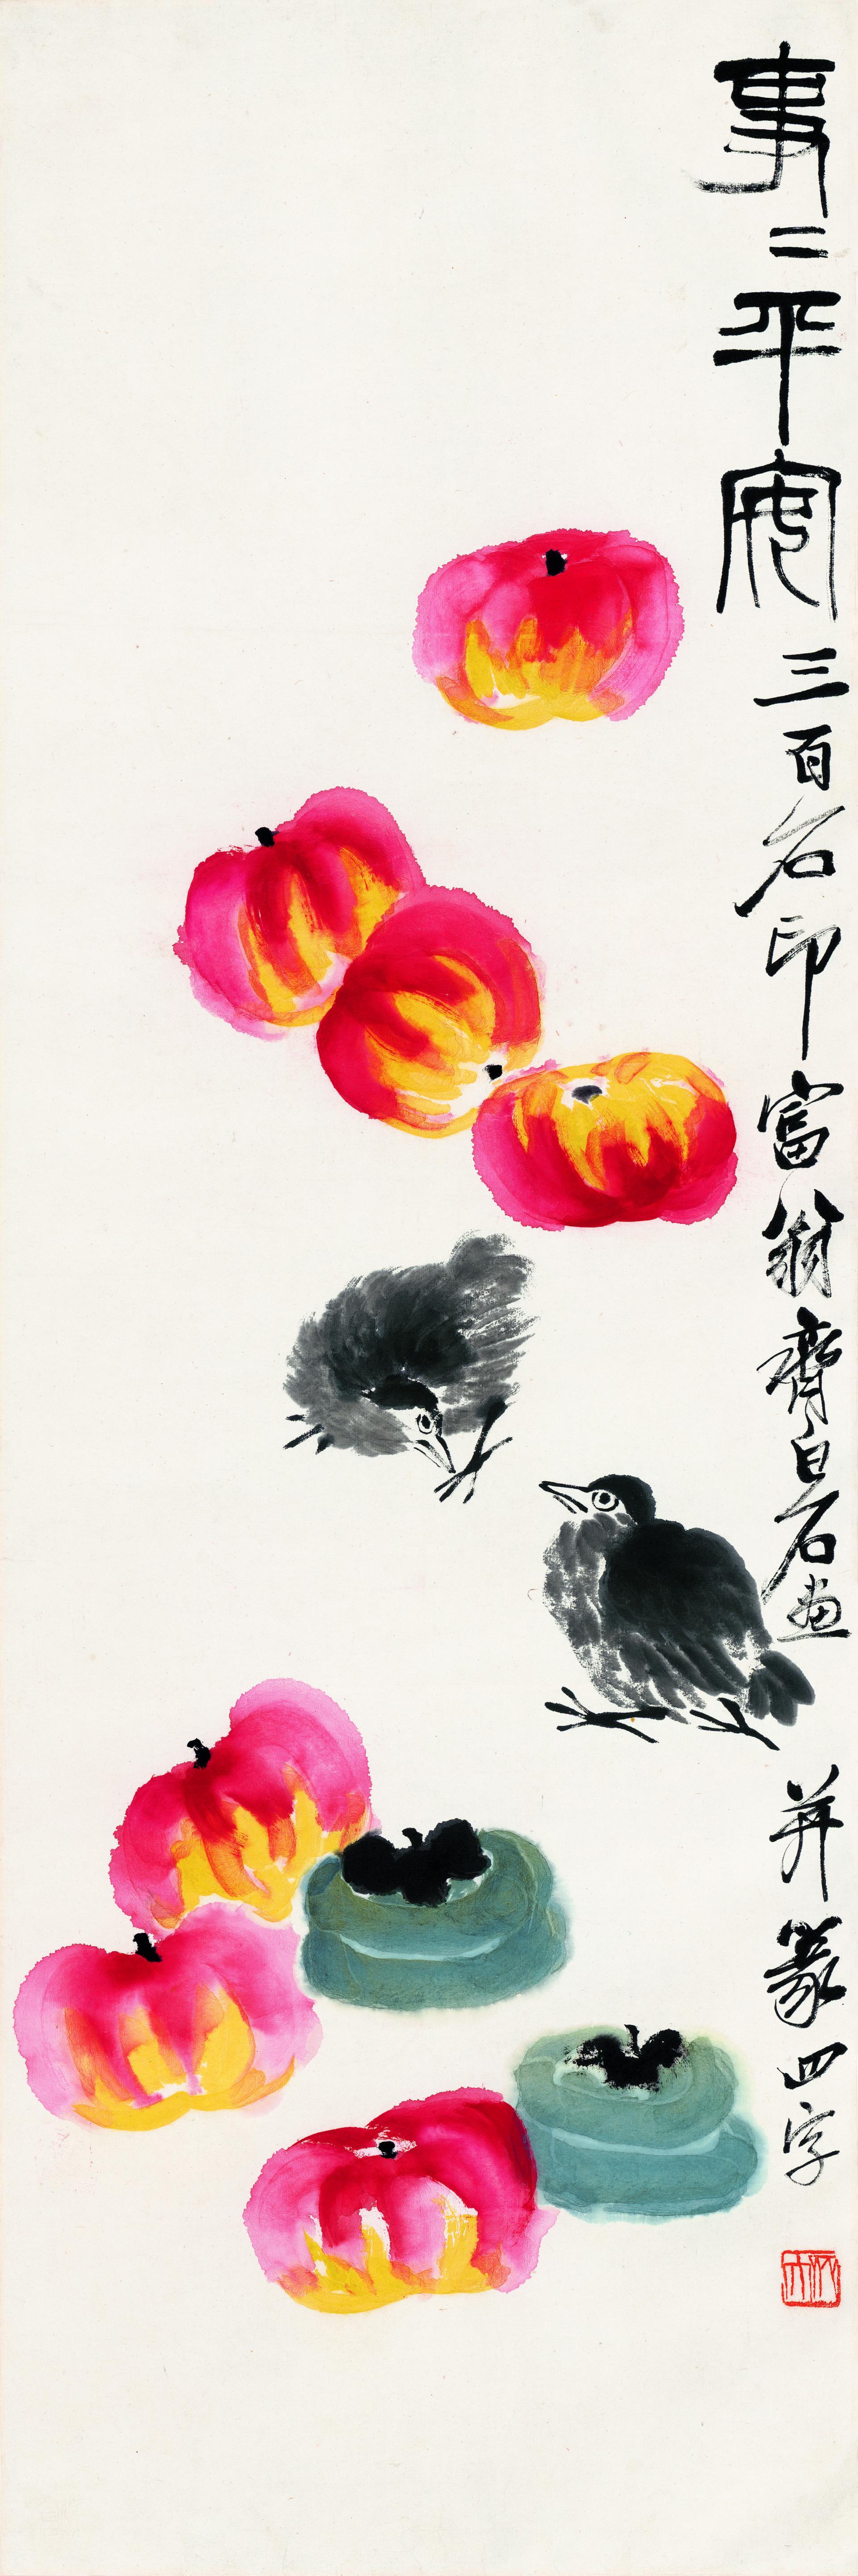 事二平安三百石印富翁齊白石畫并篆四字